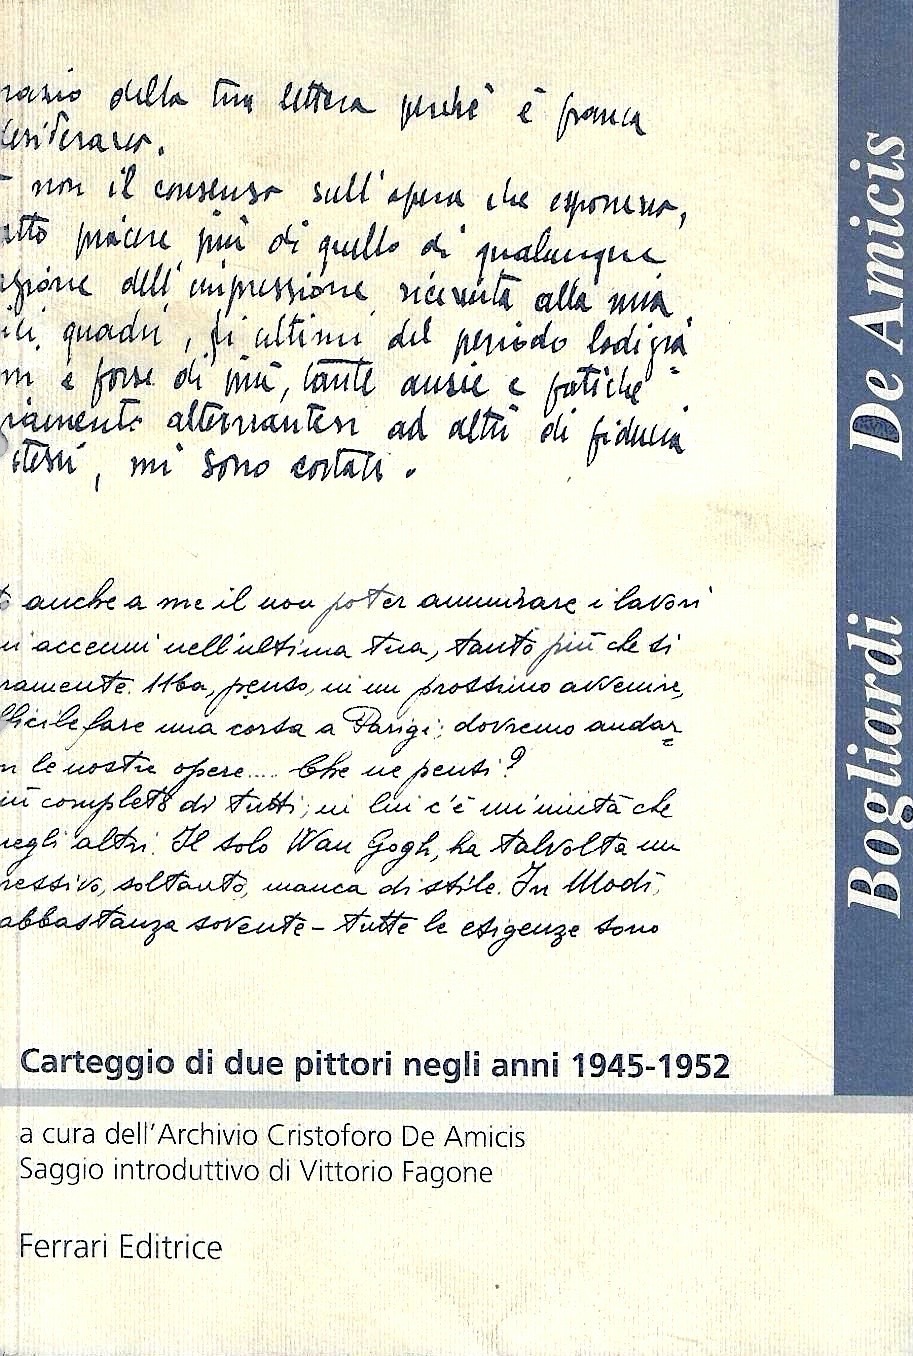 della tua lettera perché è franca
desideravo.
non il consenso sull'opera che esponevo,
atto piacere più di quello di qualunque
dell'impressione ricevuta alla mia
quadri, gli ultimi del periodo
e forse di più, tante ansie e fatiche
alternantesi ad altri di fiducia
stessi, mi sono costati.
anche a me il non poter ammirare i lavori
accenni nell'ultima tua, tanto più che si
ramente. Ma, penso, in un prossimo avvenire,
fficile fare una corsa a Parigi; dovremo andar
le nostre opere.... Che ne pensi?
iù completo di tutti; in lui c'è un'unità che
negli altri. Il solo Wan Gogh, ha talvolta un
ressivo, soltanto, manca di stile. In Modì,
abbastanza sovente – tutte le esigenze sono
Carteggio di due pittori negli anni 1945-1952
a cura dell'Archivio Cristoforo De Amicis
Saggio introduttivo di Vittorio Fagone
Ferrari Editrice
Bogliardi De Amicis